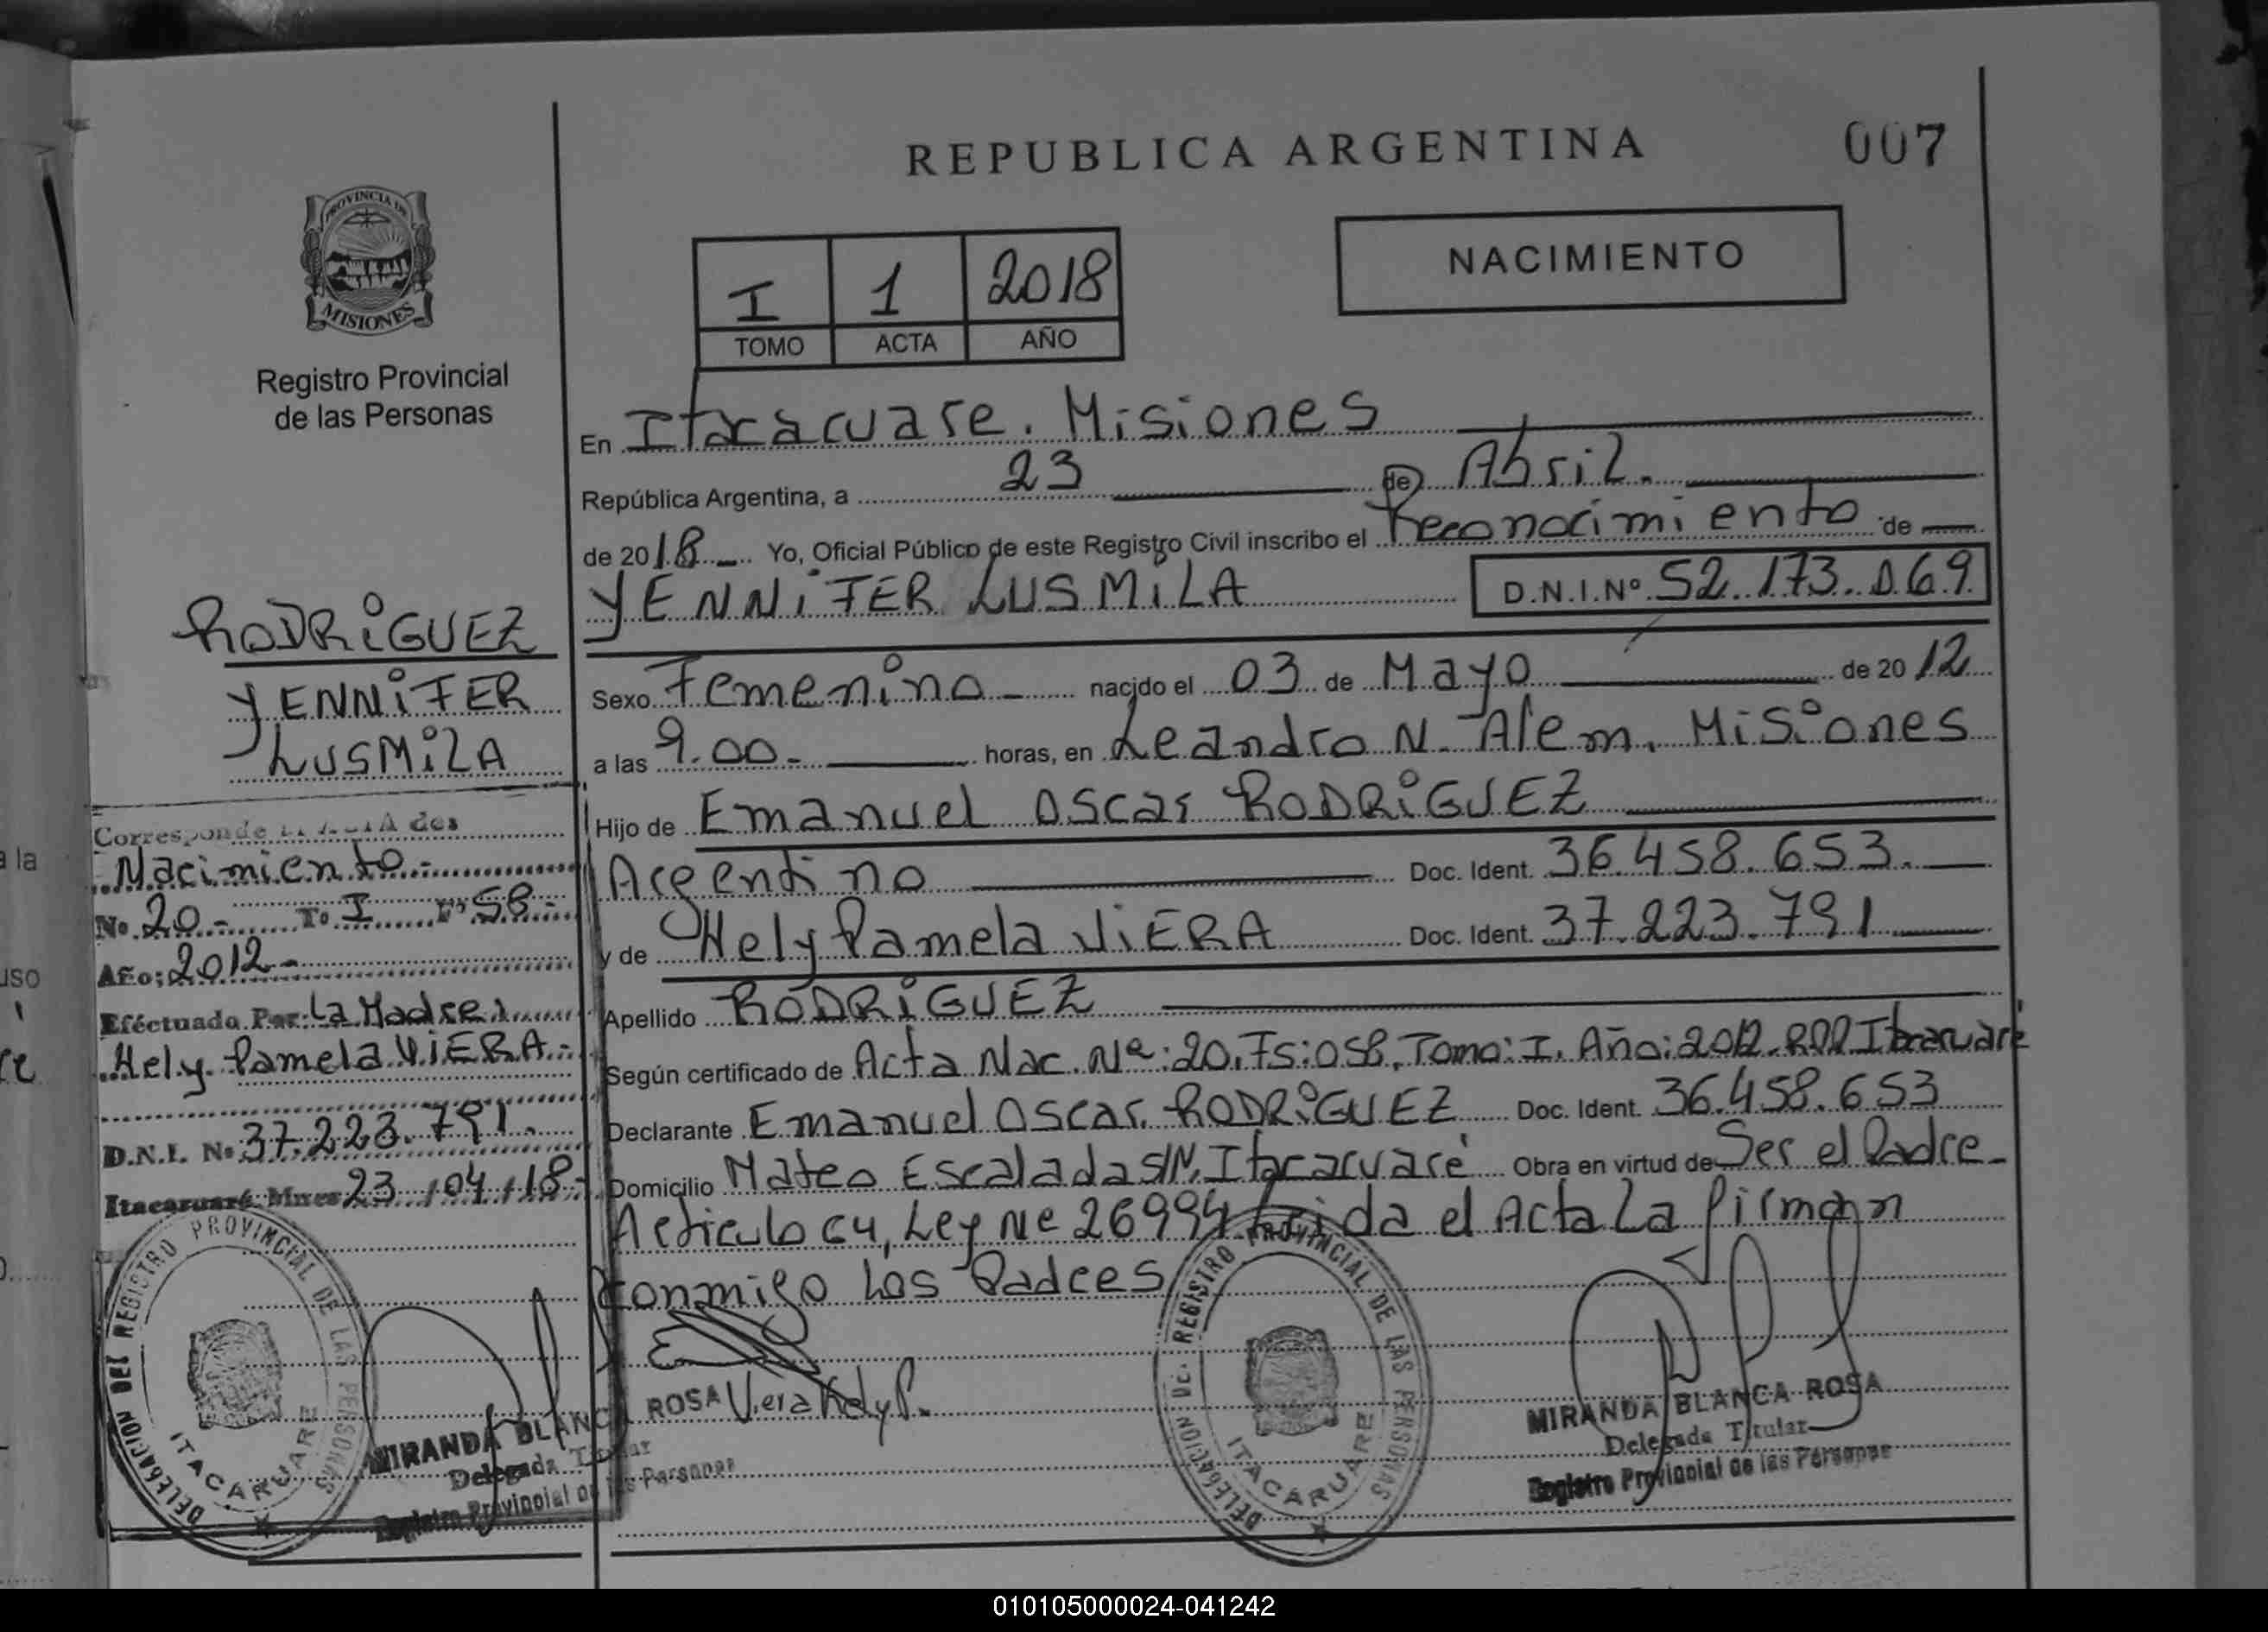 REPUBLICA ARGENTINA
007
PROVINCIA DE
MISIONES
Registro Provincial
de las Personas
I 1 2018
TOMO ACTA AÑO
NACIMIENTO
En Itacacuare. Misiones
República Argentina, a 23 de Abril.
de 2018 Yo, Oficial Público de este Registro Civil inscribo el Reconocimiento de
YENNiFER LUSMiLA D.N.I.Nº 52.173.069
Sexo Femenino nacido el 03 de Mayo de 2012
a las 9.00- horas, en Leandro N. Alem. Misiones
Hijo de Emanuel Oscar RODRiGUEZ
Argentino Doc. Ident. 36.458.653.
y de Nely Pamela ViERA Doc. Ident. 37.223.791
Apellido RODRiGUEZ
Según certificado de Acta Nac. Nº:20, Fs:058, Tomo: I. Año:2012. RPP Itacaruaré
Declarante Emanuel Oscar RODRiGUEZ Doc. Ident. 36.458.653
Domicilio Mateo Escalada S/N, Itacaruaré Obra en virtud de Ser el Padre-
Articulo 64, Ley Nº 26994 Leida el Acta La firman
conmigo Los Padres
Viera Nely P.
MIRANDA BLANCA ROSA
Delegada Titular
Registro Provincial de las Personas
DELEGACION DEL REGISTRO PROVINCIAL DE LAS PERSONAS
ITACARUARE
RODRiGUEZ
YENNiFER
LUSMiLA
Corresponde
Nacimiento.-
Nº 20- Tº I Fº 58-
Año: 2012-
Eféctuado Por: La Madre
Nely Pamela ViERA-
D.N.I. Nº 37.223.791.
Itacaruaré Mnes 23/04/18-
DELEGACION DEL REGISTRO PROVINCIAL DE LAS PERSONAS
ITACARUARE
MIRANDA BLANCA ROSA
Delegada Titular
Registro Provincial de las Personas
a la
uso
re
010105000024-041242